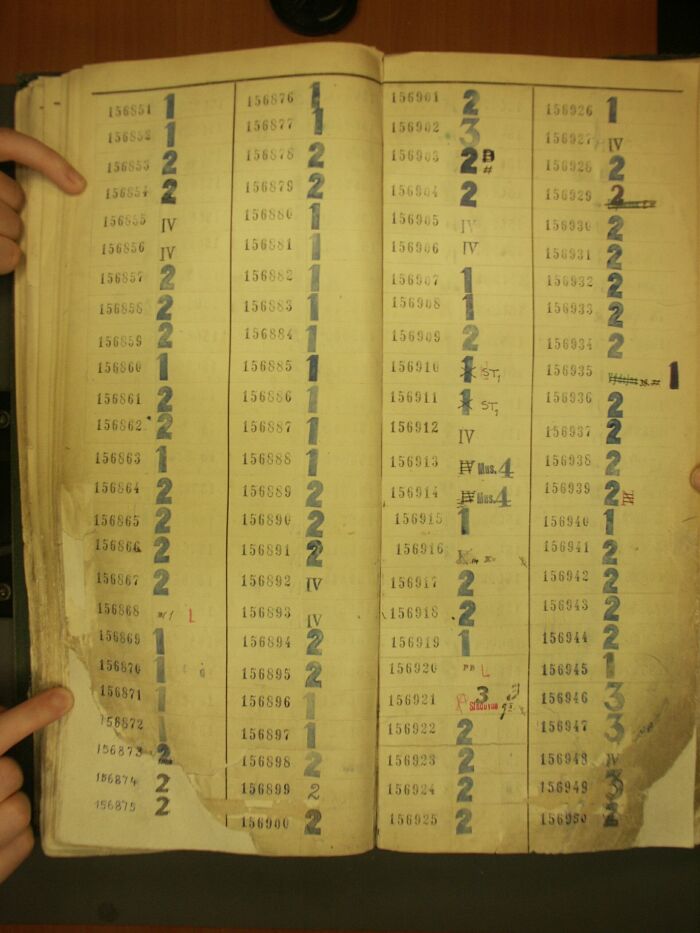 156851 1
156852 1
156853 2
156854 2
156855 IV
156856 IV
156857 2
156858 2
156859 2
156860 1
156861 2
156862 2
156863 1
156864 2
156865 2
156866 2
156867 2
156868 L
156869 1
156870 1
156871 1
156872 1
156873 2
156874 2
156875 2
156876 1
156877 1
156878 2
156879 2
156880 1
156881 1
156882 1
156883 1
156884 1
156885 1
156886 1
156887 1
156888 1
156889 2
156890 2
156891 2
156892 IV
156893 IV
156894 2
156895 2
156896 1
156897 1
156898 2
156899 2
156900 2
156901 2
156902 3
156903 2 B #
156904 2
156905 IV
156906 IV
156907 1
156908 1
156909 2
156910 1 ST,
156911 1 ST,
156912 IV
156913 IV Mus. 4
156914 IV Mus. 4
156915 1
156916
156917 2
156918 2
156919 1
156920 L
156921 3 3
156922 2
156923 2
156924 2
156925 2
156926 1
156927 IV
156928 2
156929 2
156930 2
156931 2
156932 2
156933 2
156934 2
156935 1
156936 2
156937 2
156938 2
156939 2
156940 1
156941 2
156942 2
156943 2
156944 2
156945 1
156946 3
156947 3
156948 IV
156949 3
156950 2